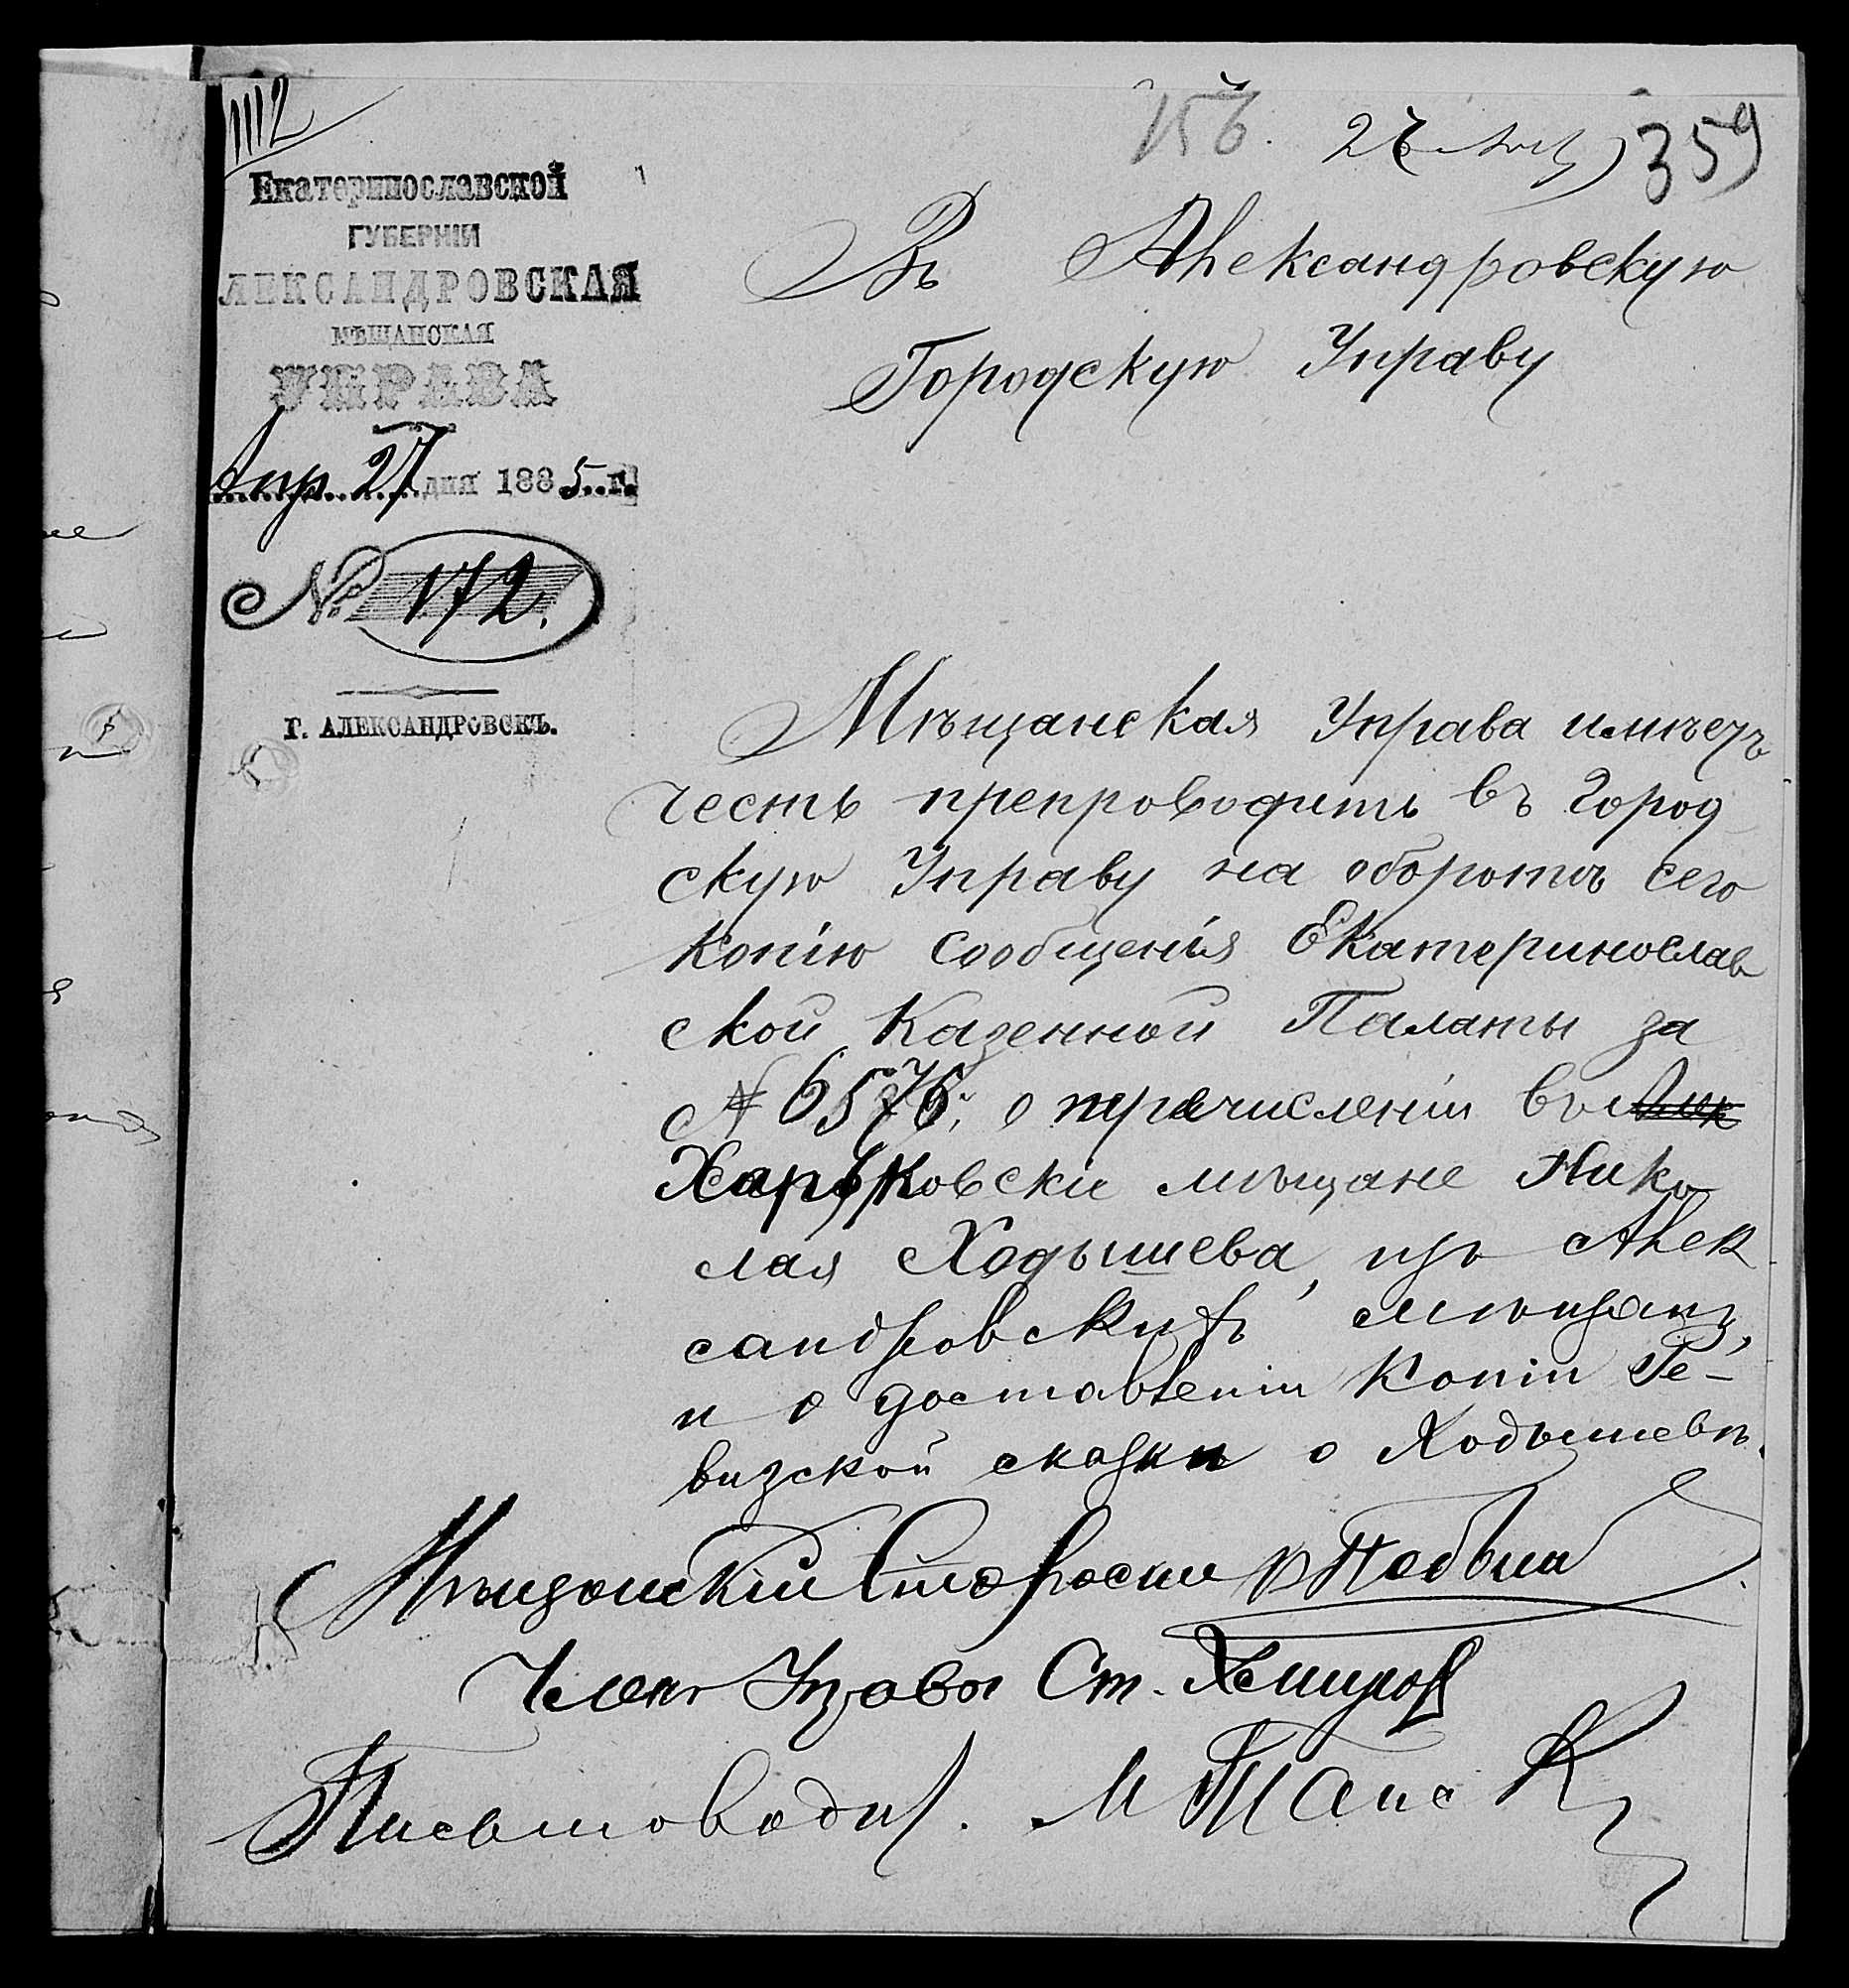 1112
156. 27 359
Екатеринославской
ГУБЕРНІИ
АЛЕКСАНДРОВСКАЯ
МѢЩАНСКАЯ
УПРАВА
Апр. 27 дня 1885 г.
№ 172.
Г. АЛЕКСАНДРОВСКЪ.
Въ Александровскую
Городскую Управу
Мѣщанская Управа имѣетъ
честь препроводить въ Город
скую Управу на оборотѣ сего
копію сообщенія Екатеринослав
ской Казенной Палаты за
№ 6576, о перечисленіи въ
Харьковскіе мѣщане Нико
лая Ходышева, изъ Алек
сандровскихъ мѣщанъ,
и о доставленіи копіи Ре-
визской сказки о Ходышевѣ.
Мѣщанскій Староста
Членъ Управы Ст.
Письмовод. М